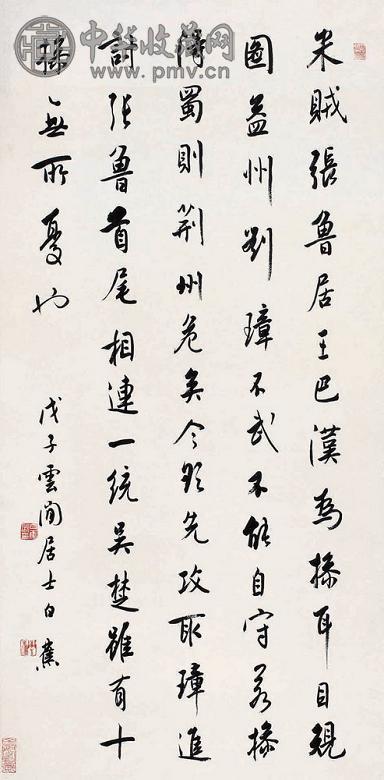 米賊張魯居王巴漢為操耳目規
圖益州劉璋不武不能自守若操
得蜀則荆州危矣今欲先攻取璋進
討張魯首尾相連一統吳楚雖有十
操無所憂也
戊子雲間居士白蕉
中华收藏网
www.pmv.cn